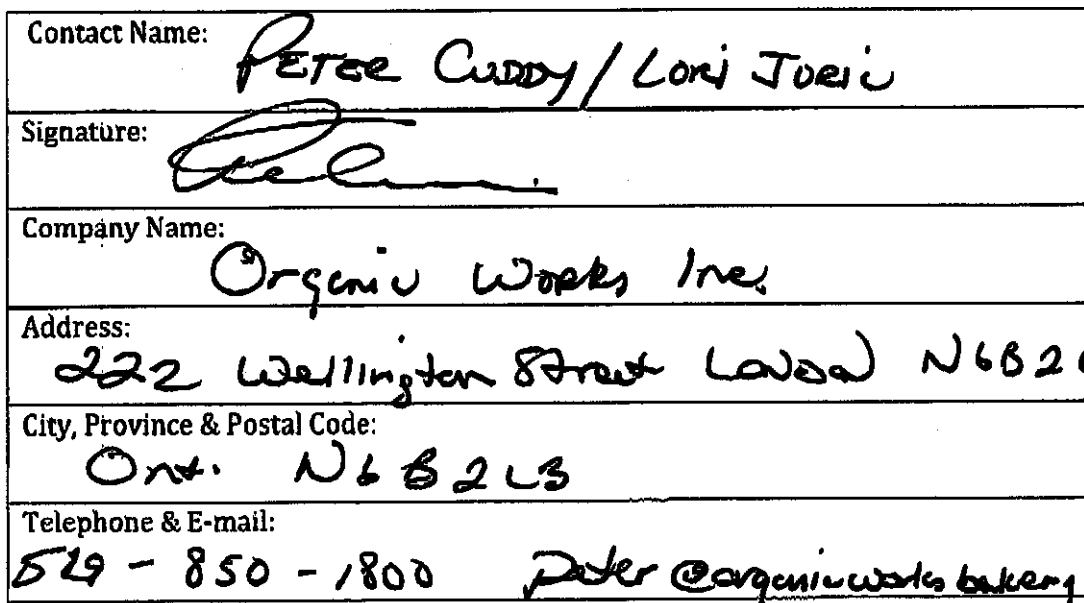 Contact Name:
PETER CUDDY / LORI JURIC
Signature:
Company Name:
Organic Works Inc.
Address:
222 Wellington Street LONDON N6B2
City, Province & Postal Code:
Ont. N6B2L3
Telephone & E-mail:
519-850-1800 peter@organicworksbakery